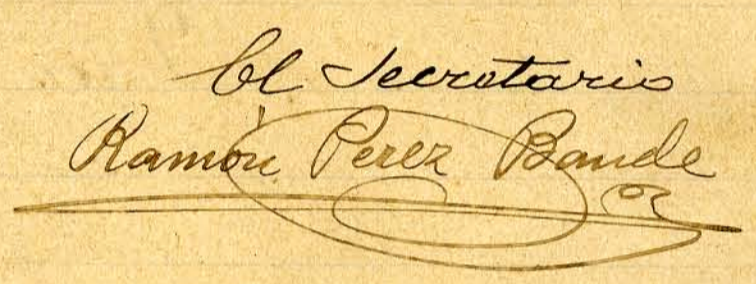 El Secretario
Ramón Perez Bande